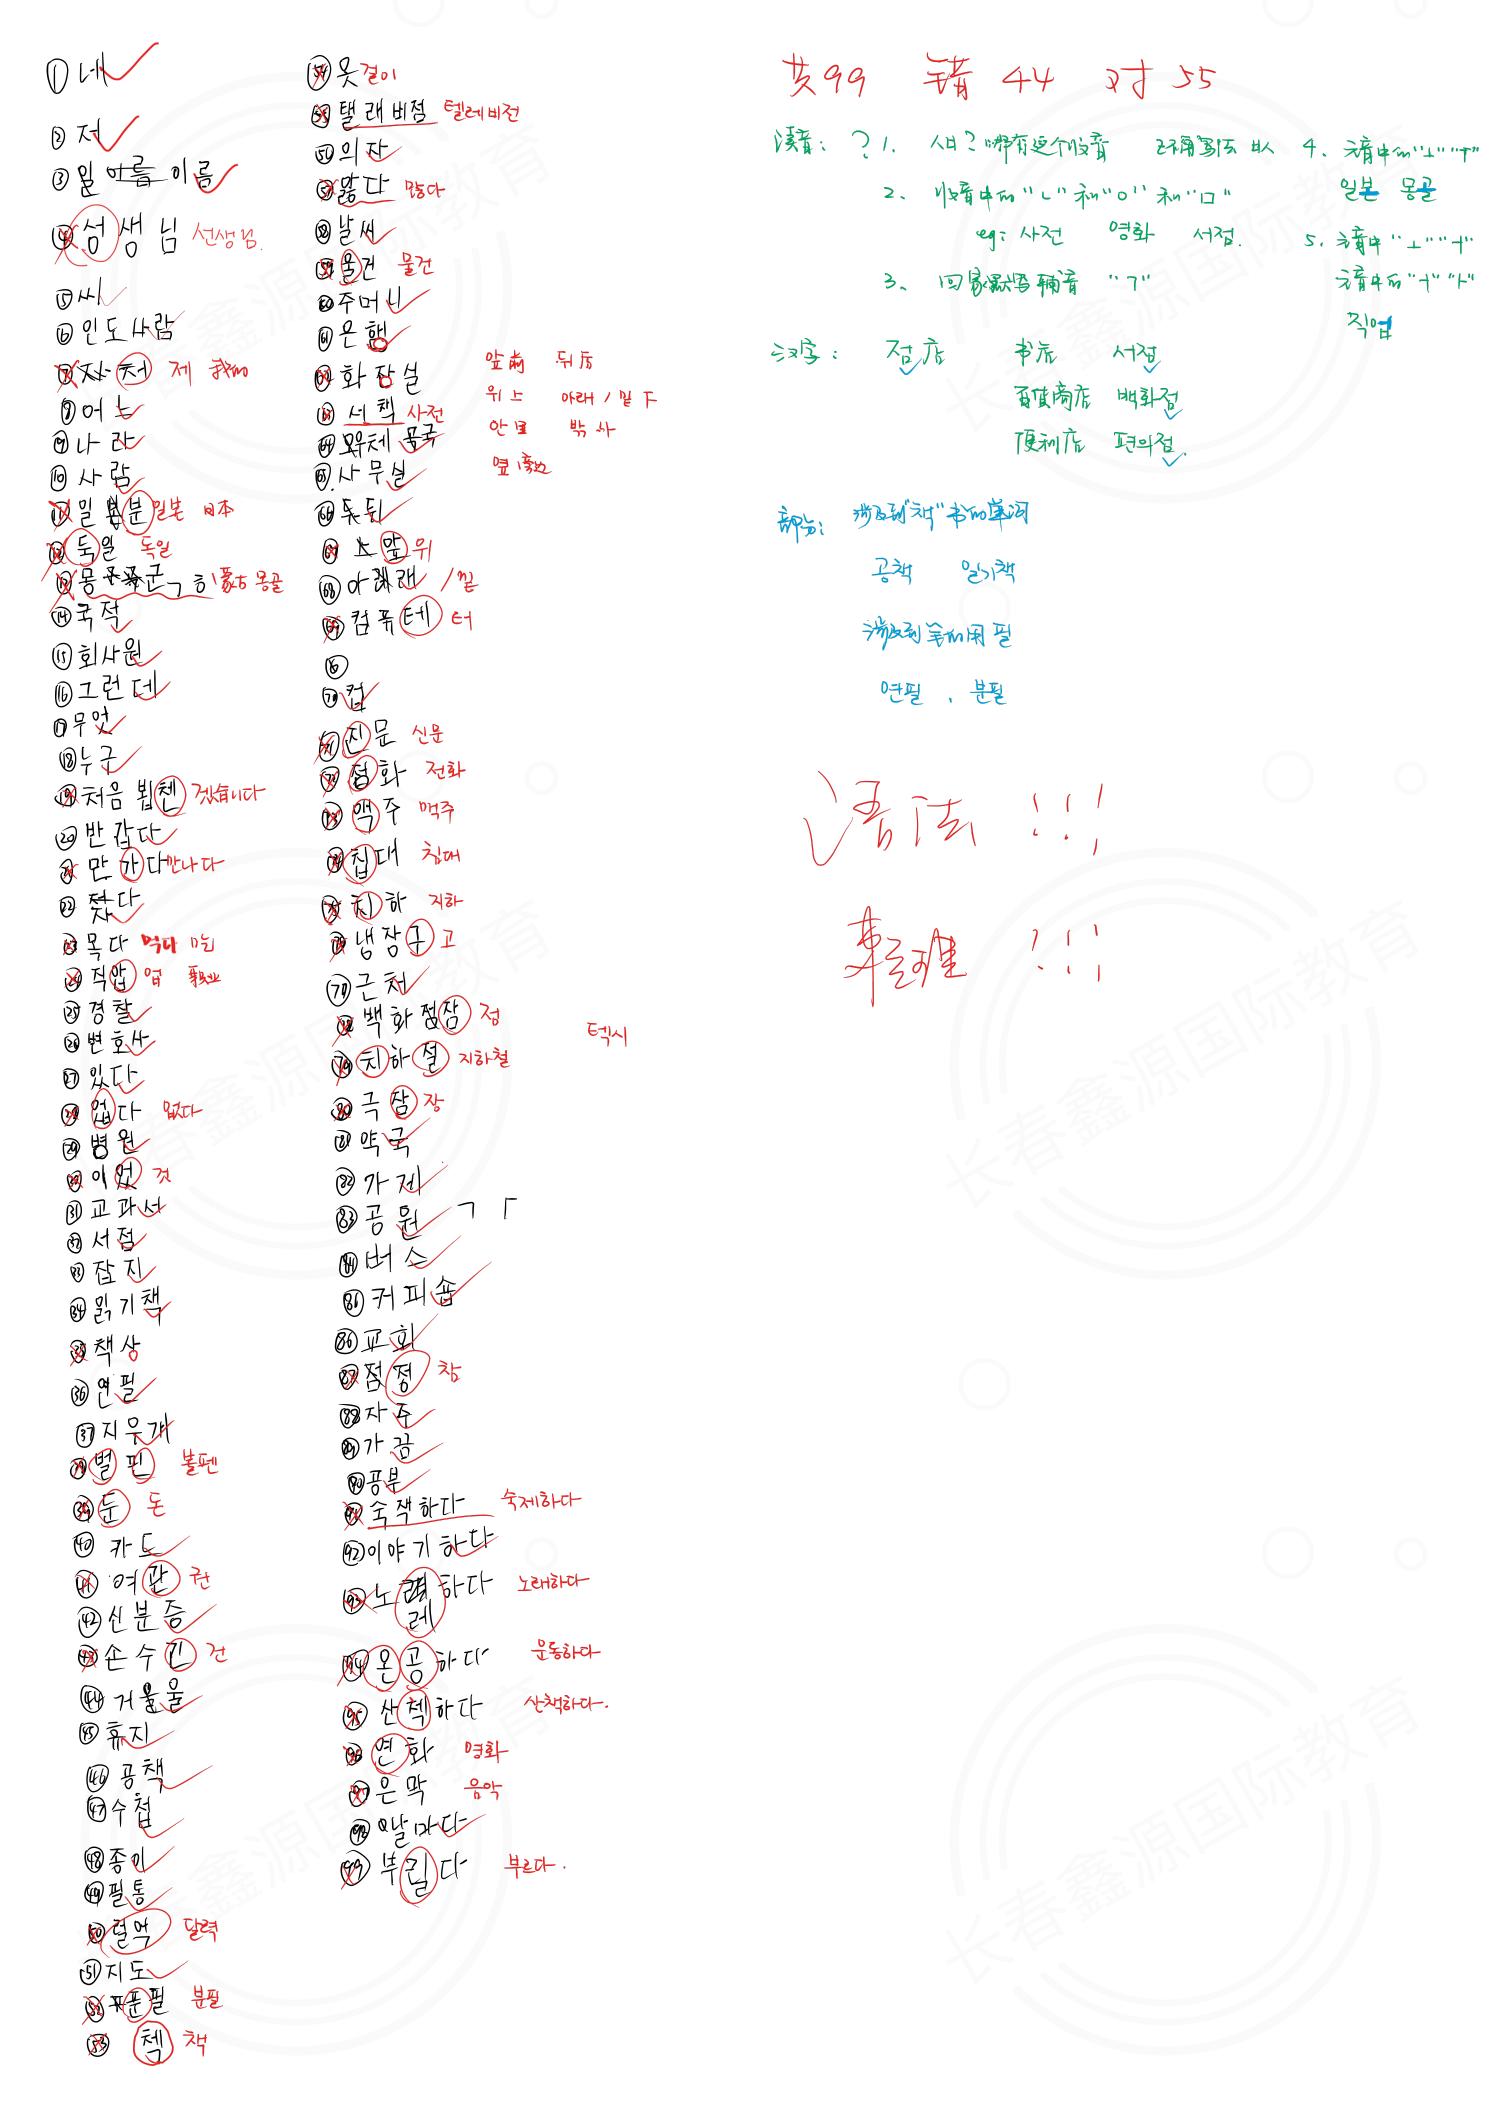 ① 네
② 저
③ 일 아름 이름
④ 성생님 선생님.
⑤ 씨
⑥ 인도사람
⑦ 자처 제 我的
⑧ 어느
⑨ 나라
⑩ 사람
⑪ 일본분 일본 日本
⑫ 둑일 독일
⑬ 몽 군 ㄱ 흐 蒙古 몽골
⑭ 국적
⑮ 회사원
⑯ 그런데
⑰ 무엇
⑱ 누구
⑲ 처음 뵙첸 겠습니다
⑳ 반갑다
㉑ 만가다 만나다
㉒ 찾다
㉓ 목다 먹다 吃
㉔ 직압 업 职业
㉕ 경찰
㉖ 변호사
㉗ 있다
㉘ 업다 없다
㉙ 병원
㉚ 이엇 것
㉛ 교과서
㉜ 서점
㉝ 잡지
㉞ 읽기책
㉟ 책상
㊱ 연필
㊲ 지우개
㊳ 벌핀 볼펜
㊴ 둔 돈
㊵ 카드
㊶ 여관 권
㊷ 신분증
㊸ 손수긴 건
㊹ 거울
㊺ 휴지
㊻ 공책
㊼ 수첩
㊽ 종이
㊾ 필통
㊿ 덜역 달력
51 지도
52 푼필 분필
53 첵 책
54 옷걸이
55 탤래비점 텔레비전
56 의자
57 많다
58 날씨
59 울건 물건
60 주머니
61 은행
62 화잠실
63 서책 사전
64 우체국
65 사무실
66 뒤
67 앞 위
68 아래 / 밑
69 컴퓨테 터
70 컵
71 진문 신문
72 점화 전화
73 액주 맥주
74 칩대 침대
75 치하 지하
76 냉장구 고
77 근처
78 백화점잠 점
79 치하절 지하철
80 극잠 장
81 약국
82 가게
83 공원 ㄱ 「
84 버스
85 커피숍
86 교회
87 점정 참
88 자주
89 가끔
90 공부
91 숙잭하다 숙제하다
92 이야기하다
93 노래하다 노래하다
레
94 온공하다 운동하다
95 산첵하다 산책하다.
96 연화 영화
97 은막 음악
98 날마다
99 부릴다 부르다.
앞 前 뒤 后
위 上 아래 / 밑 下
안 里 밖 外
옆 旁边
텍시
共99 错44 对55
读音: ? 1. ㅆㅂ? 哪有这个收音
2. 收音中的"ㄴ"和"ㅇ"和"ㅁ"
eg: 사전 영화 서점.
3. 回家默写辅音 "ㄱ"
4. 元音中的"ㅗ""ㅜ"
일본 몽골
5. 元音中"ㅗ""ㅓ"
元音中的"ㅓ""ㅏ"
직업
汉字: 점 店 书店 서점
百货商店 백화점
便利店 편의점.
部分: 涉及到"책"书的单词
공책 일기책
涉及到笔的用 필
연필 , 분필
语法 !!!
整理 ?!!
长春鑫源国际教育
长春鑫源国际教育
长春鑫源国际教育
长春鑫源国际教育
长春鑫源国际教育
长春鑫源国际教育